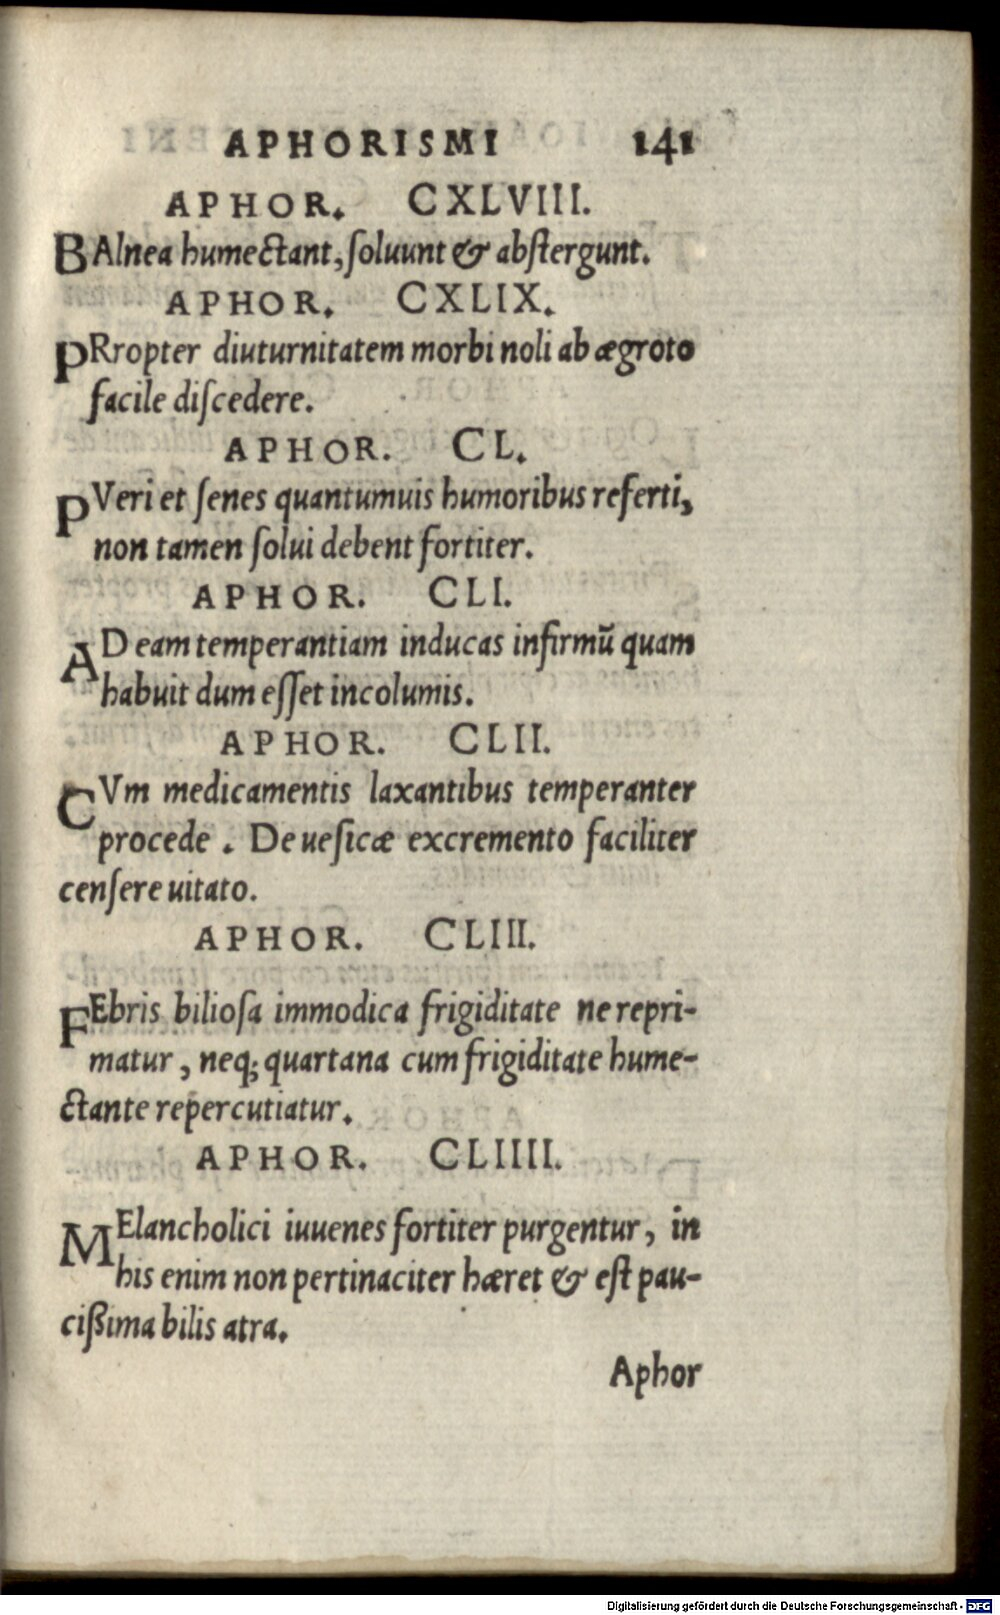 APHORISMI 141
APHOR. CXLVIII.
BAlnea humectant, ſoluunt & abſtergunt.
APHOR. CXLIX.
PRropter diuturnitatem morbi noli ab ægroto
facile diſcedere.
APHOR. CL.
PVeri et ſenes quantumuis humoribus referti,
non tamen ſolui debent fortiter.
APHOR. CLI.
AD eam temperantiam inducas infirmū quam
habuit dum eſſet incolumis.
APHOR. CLII.
CVm medicamentis laxantibus temperanter
procede. De ueſicæ excremento faciliter
cenſere uitato.
APHOR. CLIII.
FEbris bilioſa immodica frigiditate ne repri-
matur, neq; quartana cum frigiditate hume-
ctante repercutiatur.
APHOR. CLIIII.
MElancholici iuuenes fortiter purgentur, in
his enim non pertinaciter hæret & eſt pau-
cißima bilis atra.
Aphor
Digitalisierung gefördert durch die Deutsche Forschungsgemeinschaft - DFG